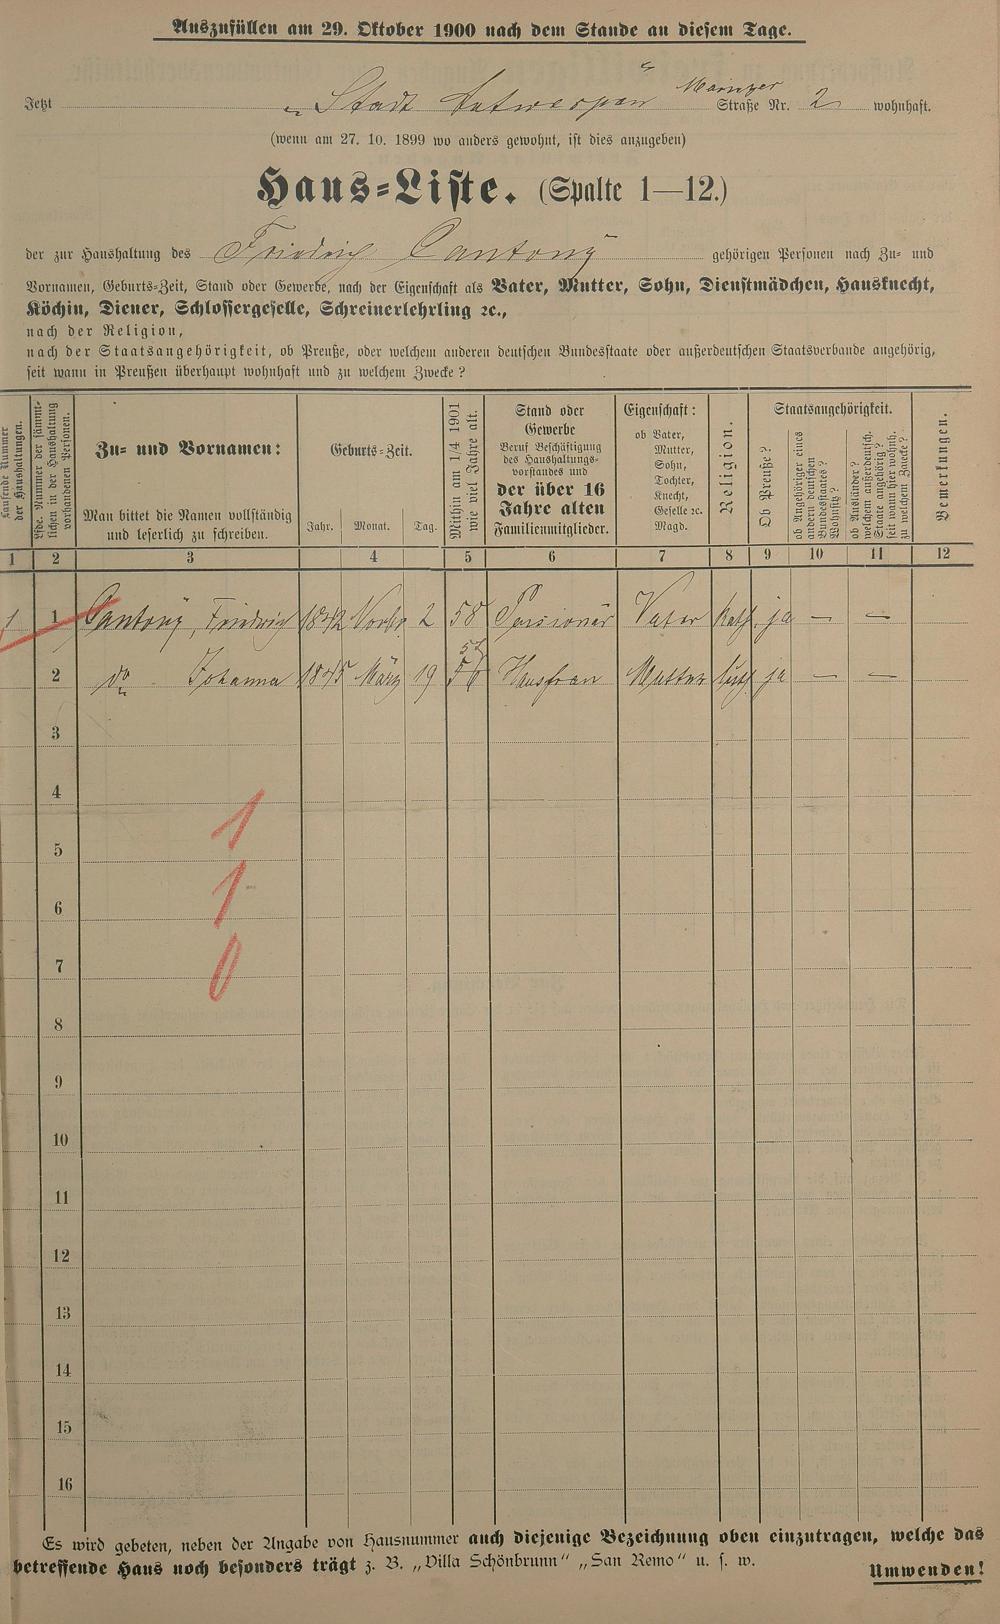 Auszufüllen am 29. Oktober 1900 nach dem Stande an diesem Tage.
Jetzt „Stadt Antwerpen“ Mainzer Straße Nr. 2 wohnhaft.
(wenn am 27. 10. 1899 wo anders gewohnt, ist dies anzugeben)
Haus-Liste. (Spalte 1—12.)
der zur Haushaltung des Friedrich Cantony gehörigen Personen nach Zu- und
Vornamen, Geburts-Zeit, Stand oder Gewerbe, nach der Eigenschaft als Vater, Mutter, Sohn, Dienstmädchen, Hausknecht,
Köchin, Diener, Schlossergeselle, Schreinerlehrling ꝛc.,
nach der Religion,
nach der Staatsangehörigkeit, ob Preuße, oder welchem anderen deutschen Bundesstaate oder außerdeutschen Staatsverbande angehörig,
seit wann in Preußen überhaupt wohnhaft und zu welchem Zwecke?
Laufende Nummer
der Haushaltungen.
Lfde. Nummer der sämmt-
lichen in der Haushaltung
vorhandenen Personen.
Zu- und Vornamen:
Man bittet die Namen vollständig
und leserlich zu schreiben.
Geburts-Zeit.
Jahr. Monat. Tag.
Mithin am 1/4 1901
wie viel Jahre alt.
Stand oder
Gewerbe
Beruf Beschäftigung
des Haushaltungs-
vorstandes und
der über 16
Jahre alten
Familienmitglieder.
Eigenschaft:
ob Vater,
Mutter,
Sohn,
Tochter,
Knecht,
Geselle ꝛc.
Magd.
Religion.
Staatsangehörigkeit.
Ob Preuße?
ob Angehöriger eines
andern deutschen
Bundesstaates?
Wohnsitz?
ob Ausländer?
welchem außerdeutsch.
Staate angehörig?
seit wann hier wohnh.
zu welchem Zwecke?
Bemerkungen.
1 2 3 4 5 6 7 8 9 10 11 12
1 1 Cantony, Friedrich 1842 Novbr 2 58 Pensionär Vater kath. ja — —
2 do Johanna 1845 März 19 56 Hausfrau Mutter luth ja — —
3
4
1
5
1
6
0
7
8
9
10
11
12
13
14
15
16
Es wird gebeten, neben der Angabe von Hausnummer auch diejenige Bezeichnung oben einzutragen, welche das
betreffende Haus noch besonders trägt z. B. „Villa Schönbrunn“ „San Remo“ u. s. w.
Umwenden!